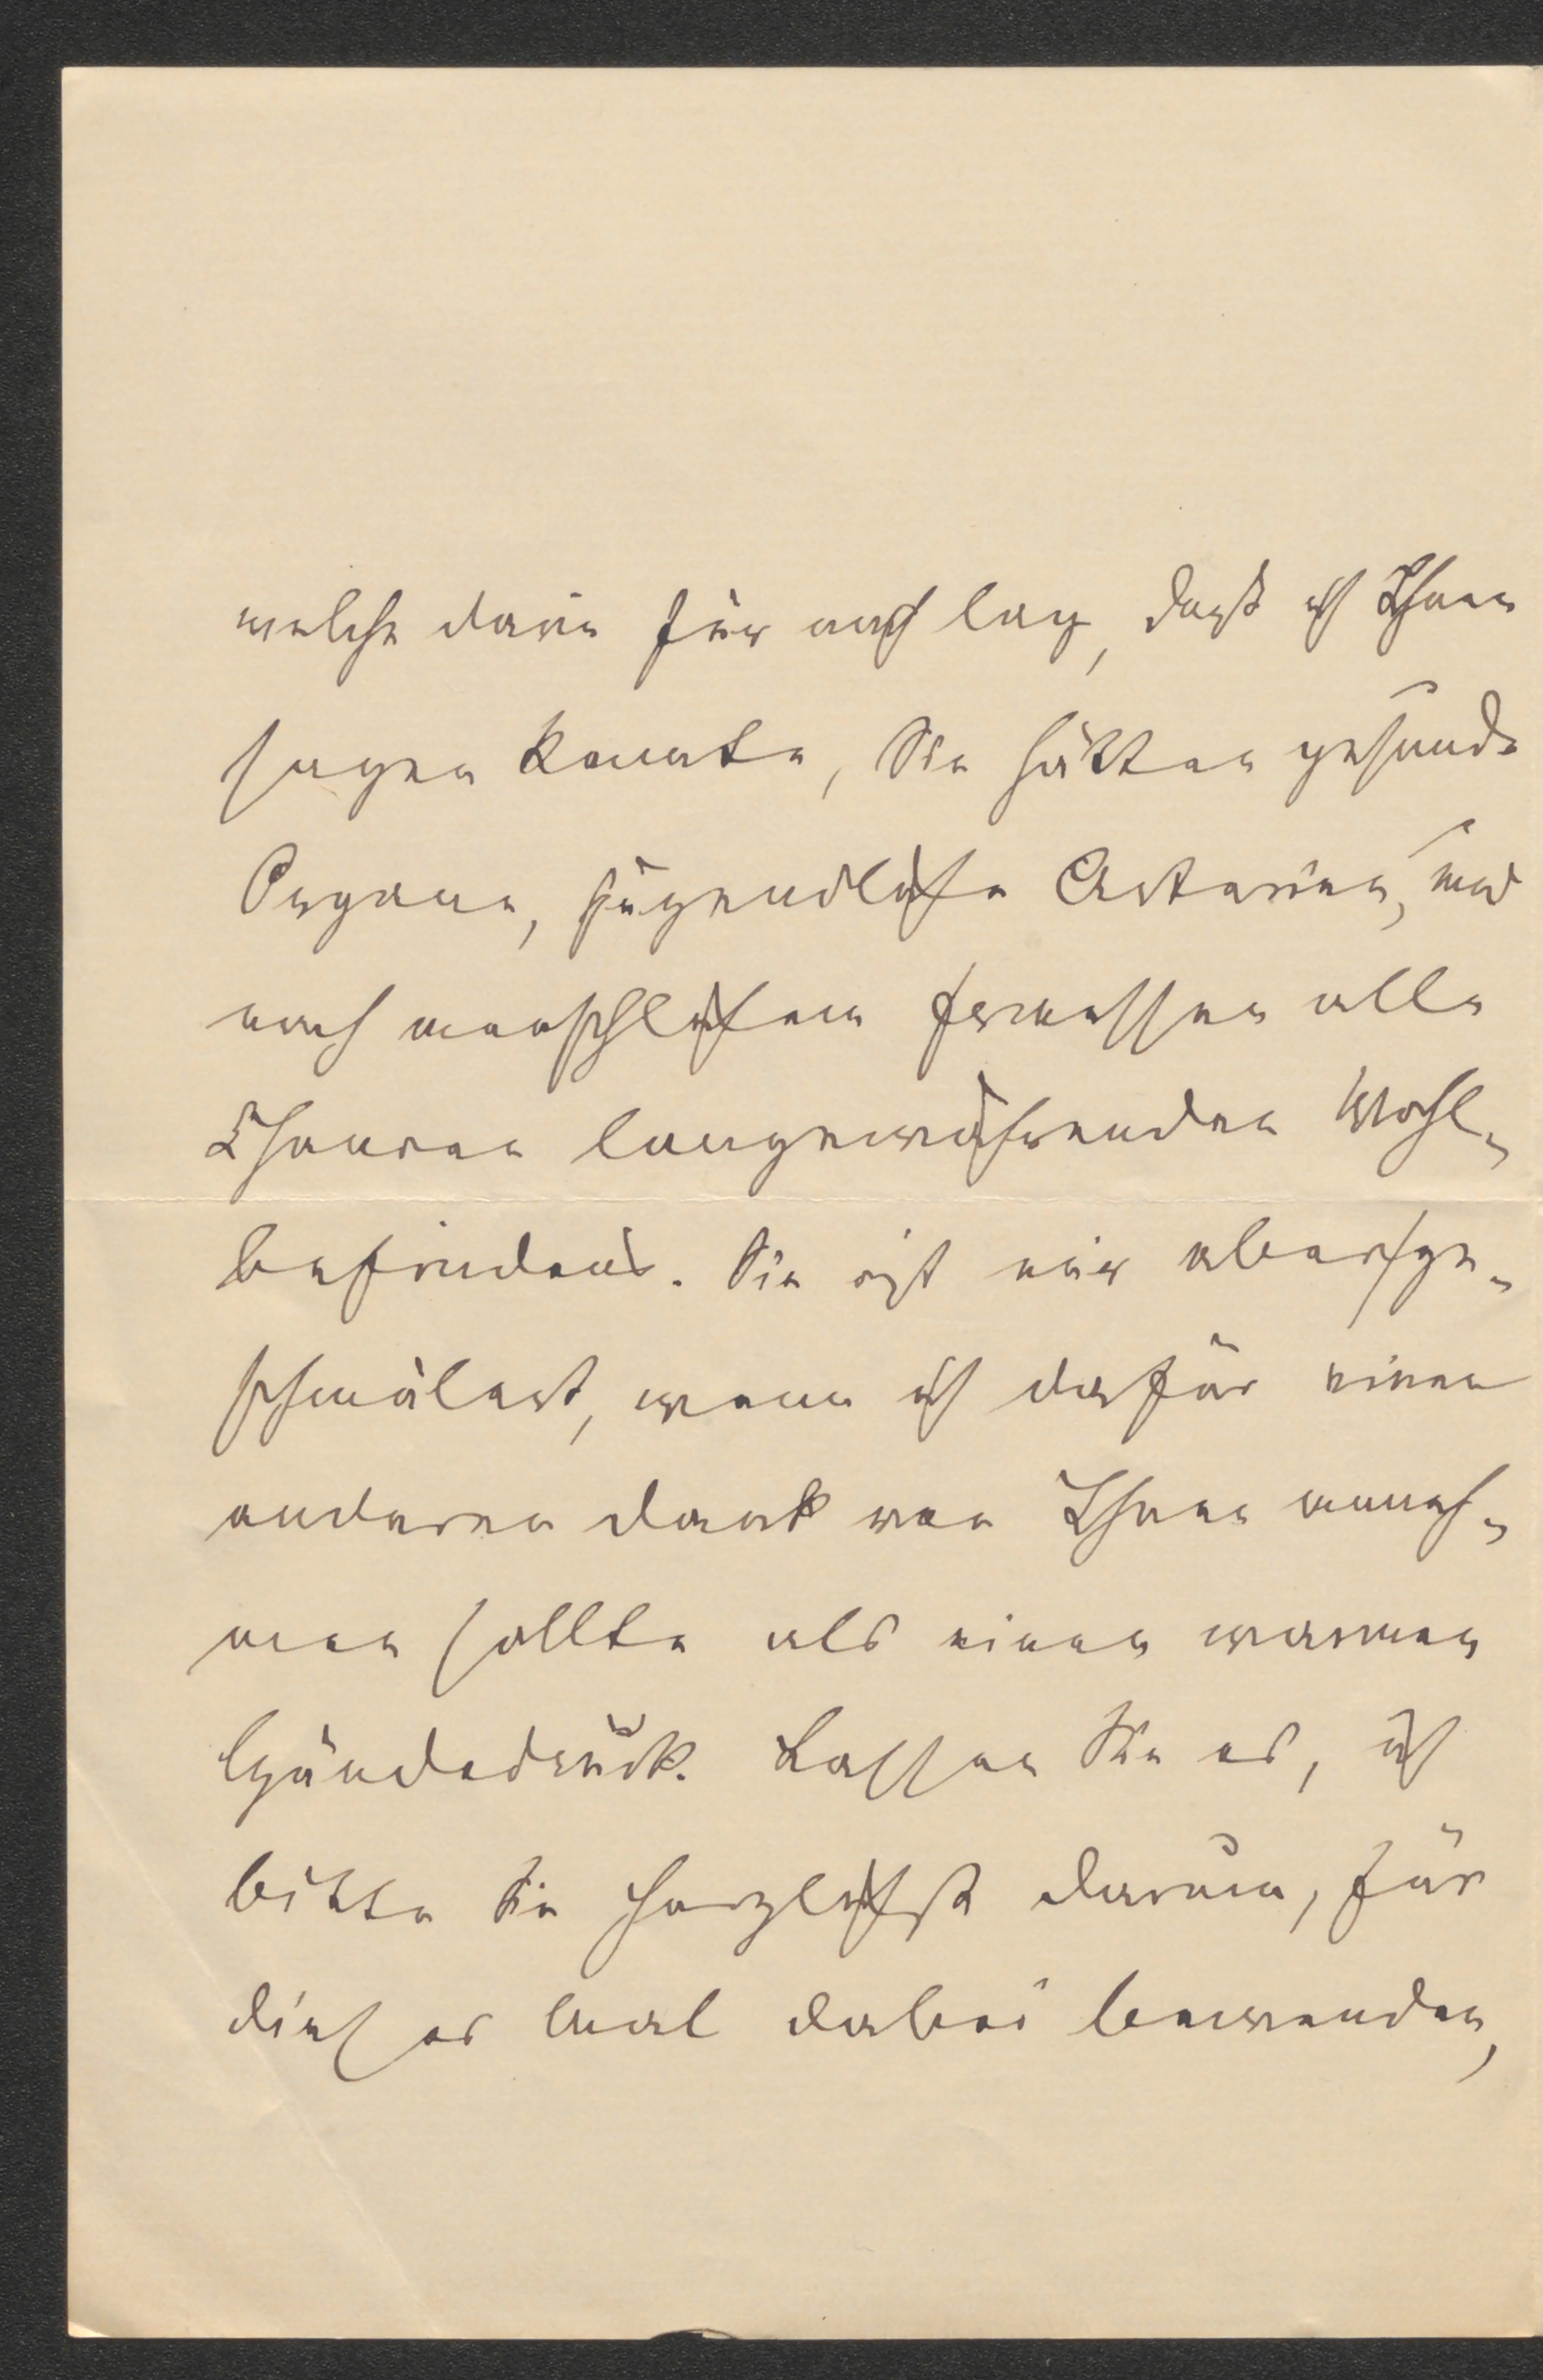 welche darin für mich lag, daß ich Ihnen
sagen konnte, Sie hätten gesunde
Organe, jugendliche Arterien, und
nach menschlichem Ermessen alle
Chancen langewährenden Wohl-
befindens. Sie ist mir aber
geschmälert, wenn ich dafür einen
anderen Dank von Ihnen anneh-
men sollte als einen warmen
Händedruck. Lassen Sie es, ich
bitte Sie herzlichst darum, für
dieses Mal dabei bewenden,